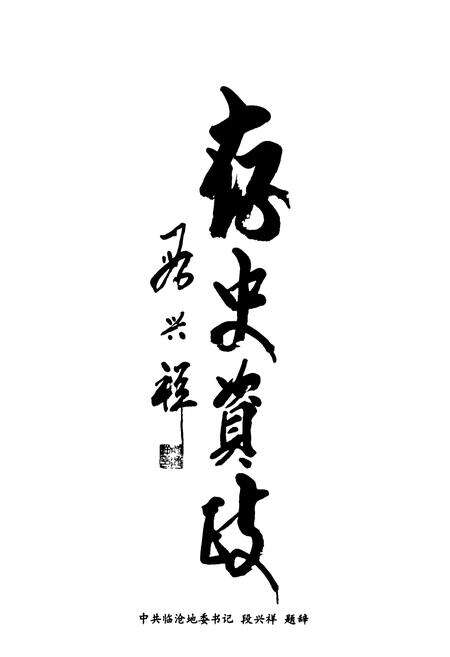 存史資政
段兴祥
中共临沧地委书记 段兴祥 题辞